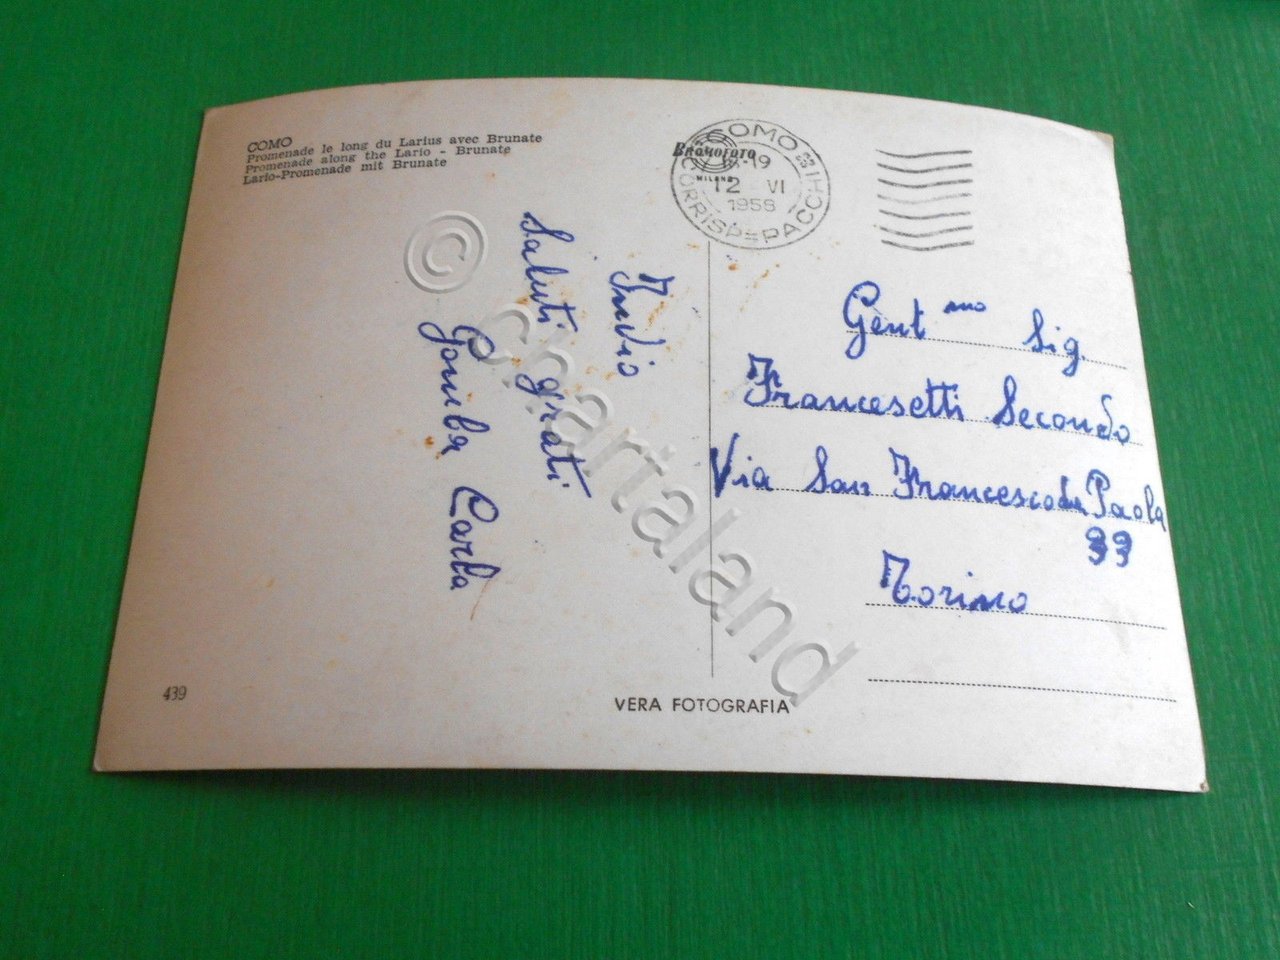 COMO
Promenade le long du Larius avec Brunate
Promenade along the Lario - Brunate
Lario-Promenade mit Brunate
BROMOFOTO
MILANO
COMO
CORRISP=PACCHI
18-19
12 VI
1956
Invio
Saluti grati
Gomba Carla
Gent mo Sig.
Francesetti Secondo
Via San Francesco da Paola
33
Torino
439
VERA FOTOGRAFIA
© Chartaland